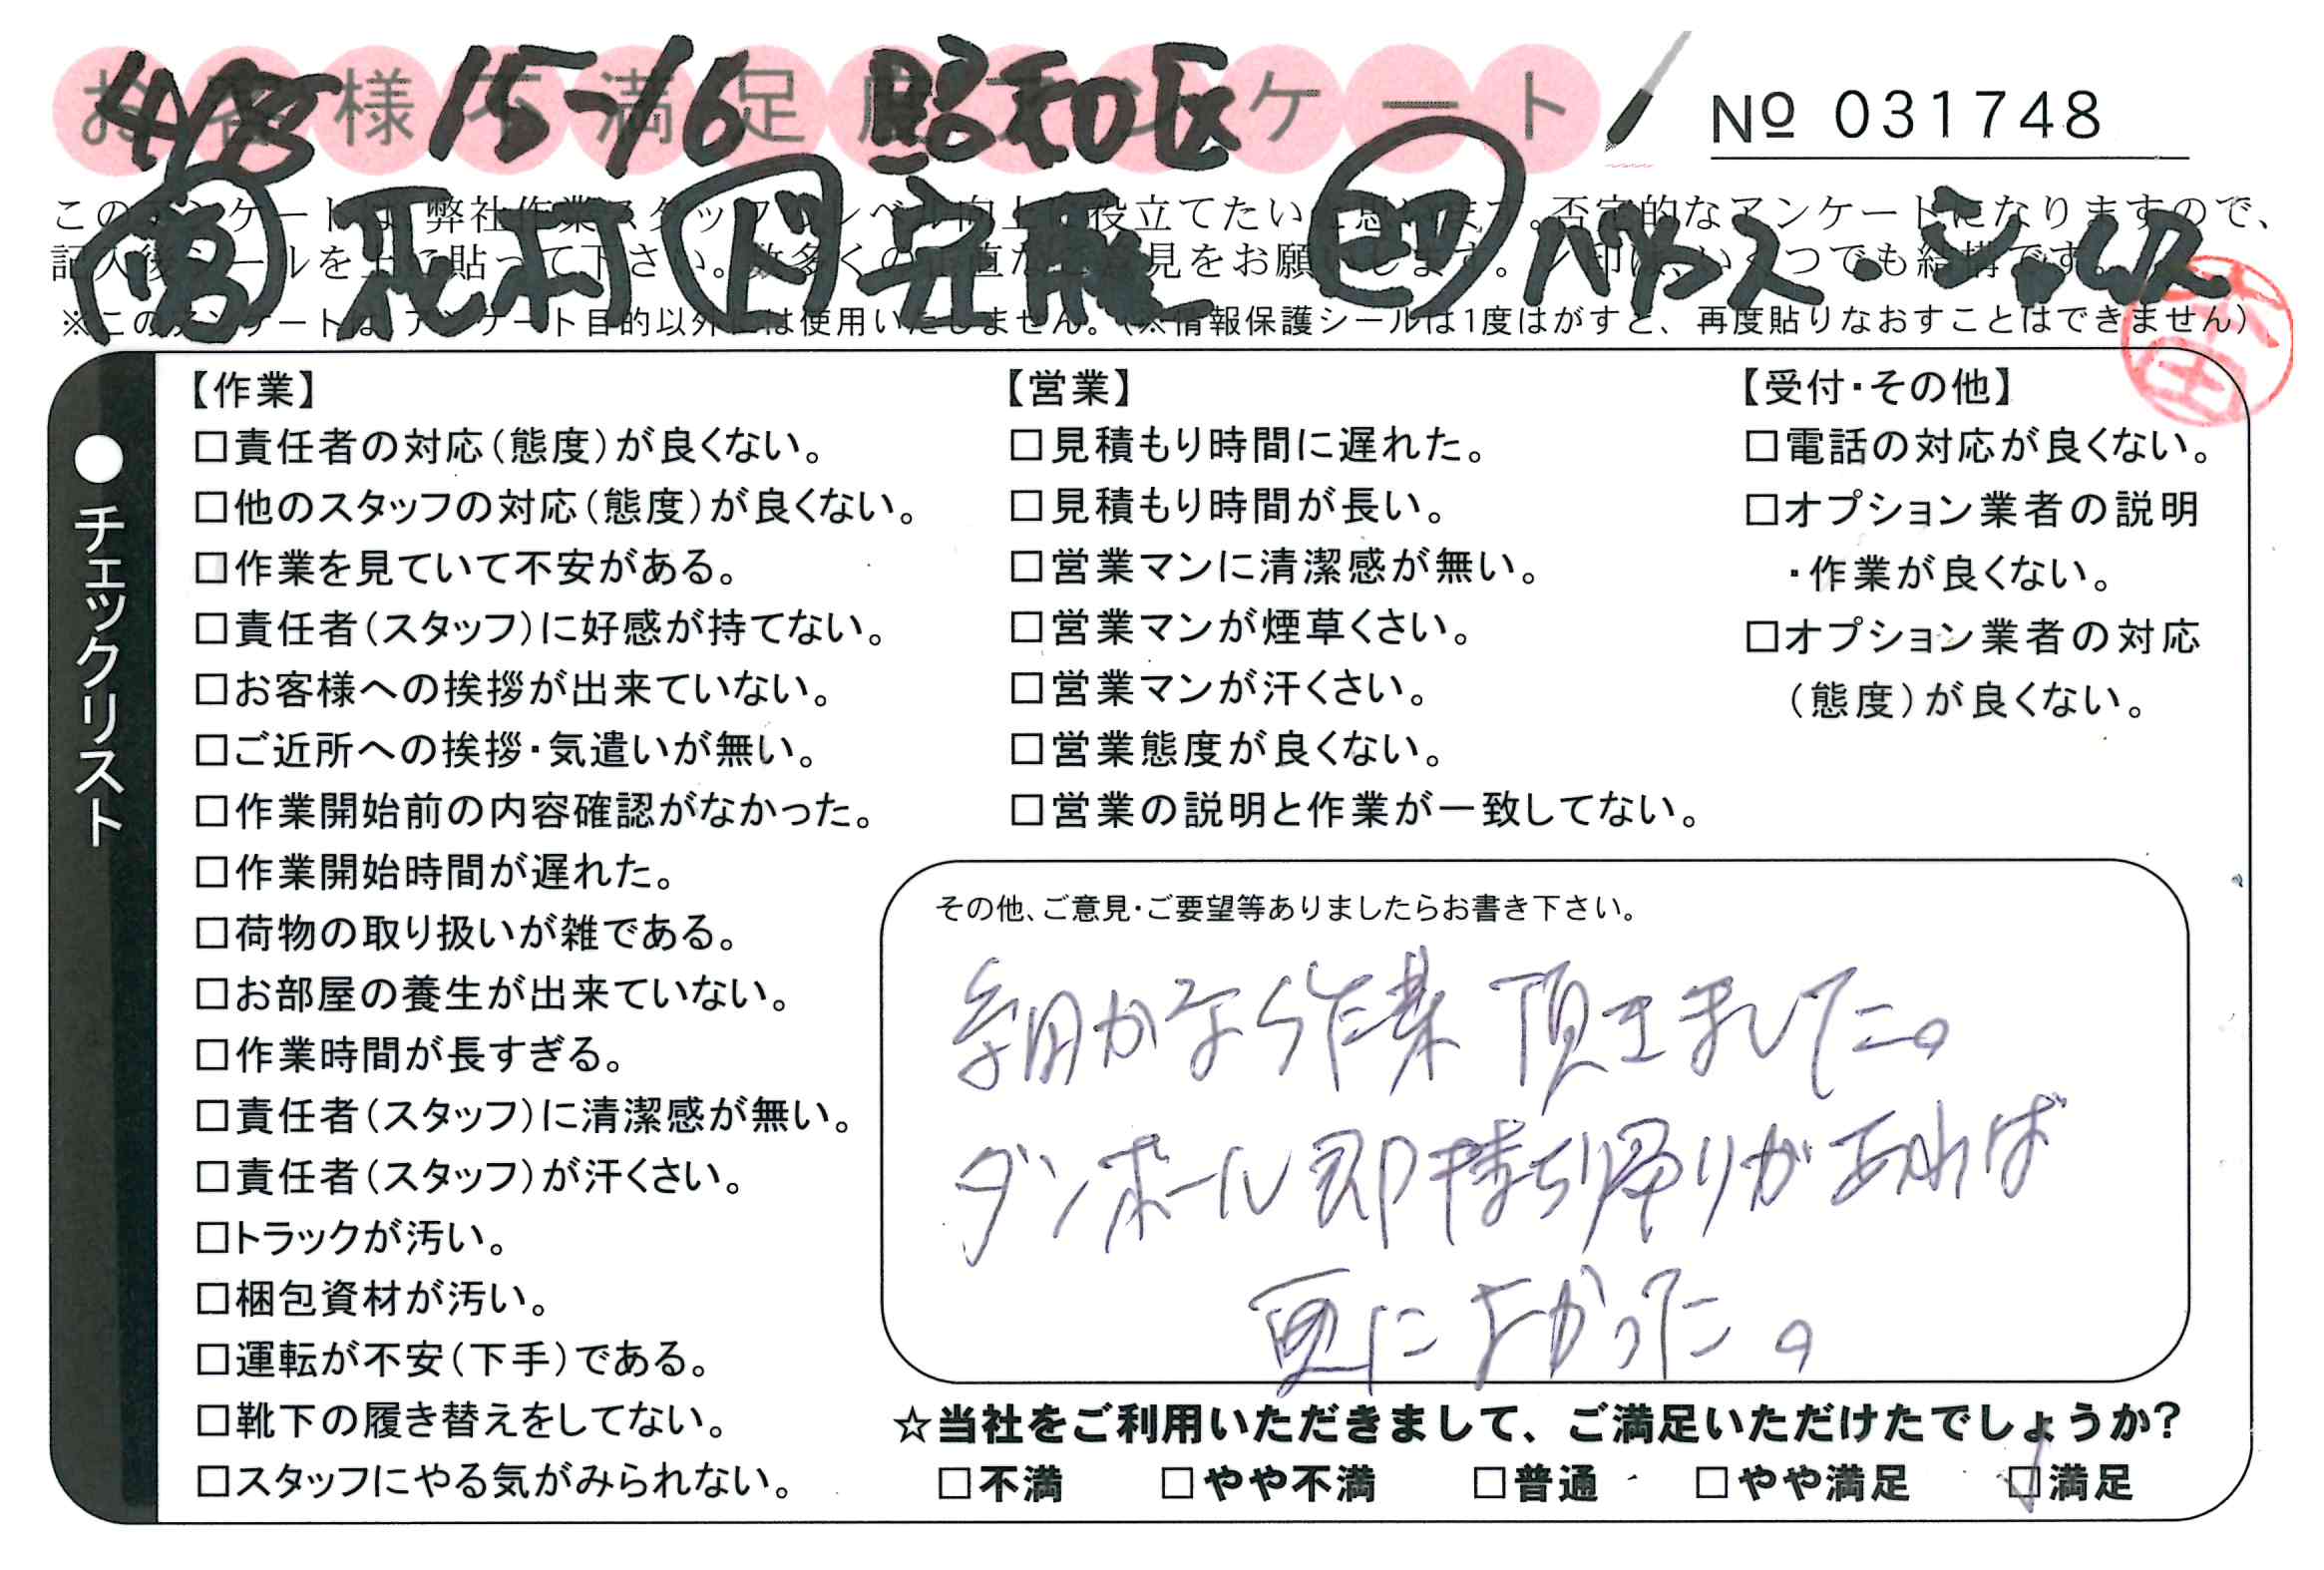 お客様不満足度アンケート
4/8 15-16 昭和区
No 031748
営 花村 ド 安飛 セワ バリュース・シャルス
このアンケートは、弊社作業スタッフのレベル向上に役立てたいと思います。否定的なアンケートになりますので、
記入後シールを上に貼って下さい。数多くの正直なご意見をお願いします。レ印は、いくつでも結構です。
※このアンケートは、アンケート目的以外には使用いたしません。(※情報保護シールは1度はがすと、再度貼りなおすことはできません)
●チェックリスト
【作業】
□責任者の対応(態度)が良くない。
□他のスタッフの対応(態度)が良くない。
□作業を見ていて不安がある。
□責任者(スタッフ)に好感が持てない。
□お客様への挨拶が出来ていない。
□ご近所への挨拶・気遣いが無い。
□作業開始前の内容確認がなかった。
□作業開始時間が遅れた。
□荷物の取り扱いが雑である。
□お部屋の養生が出来ていない。
□作業時間が長すぎる。
□責任者(スタッフ)に清潔感が無い。
□責任者(スタッフ)が汗くさい。
□トラックが汚い。
□梱包資材が汚い。
□運転が不安(下手)である。
□靴下の履き替えをしてない。
□スタッフにやる気がみられない。
【営業】
□見積もり時間に遅れた。
□見積もり時間が長い。
□営業マンに清潔感が無い。
□営業マンが煙草くさい。
□営業マンが汗くさい。
□営業態度が良くない。
□営業の説明と作業が一致してない。
【受付・その他】
□電話の対応が良くない。
□オプション業者の説明
・作業が良くない。
□オプション業者の対応
(態度)が良くない。
その他、ご意見・ご要望等ありましたらお書き下さい。
細かな作業頂きました。
ダンボール即持ち帰りがあれば
更によかった。
☆当社をご利用いただきまして、ご満足いただけたでしょうか?
□不満 □やや不満 □普通 □やや満足 ☑満足